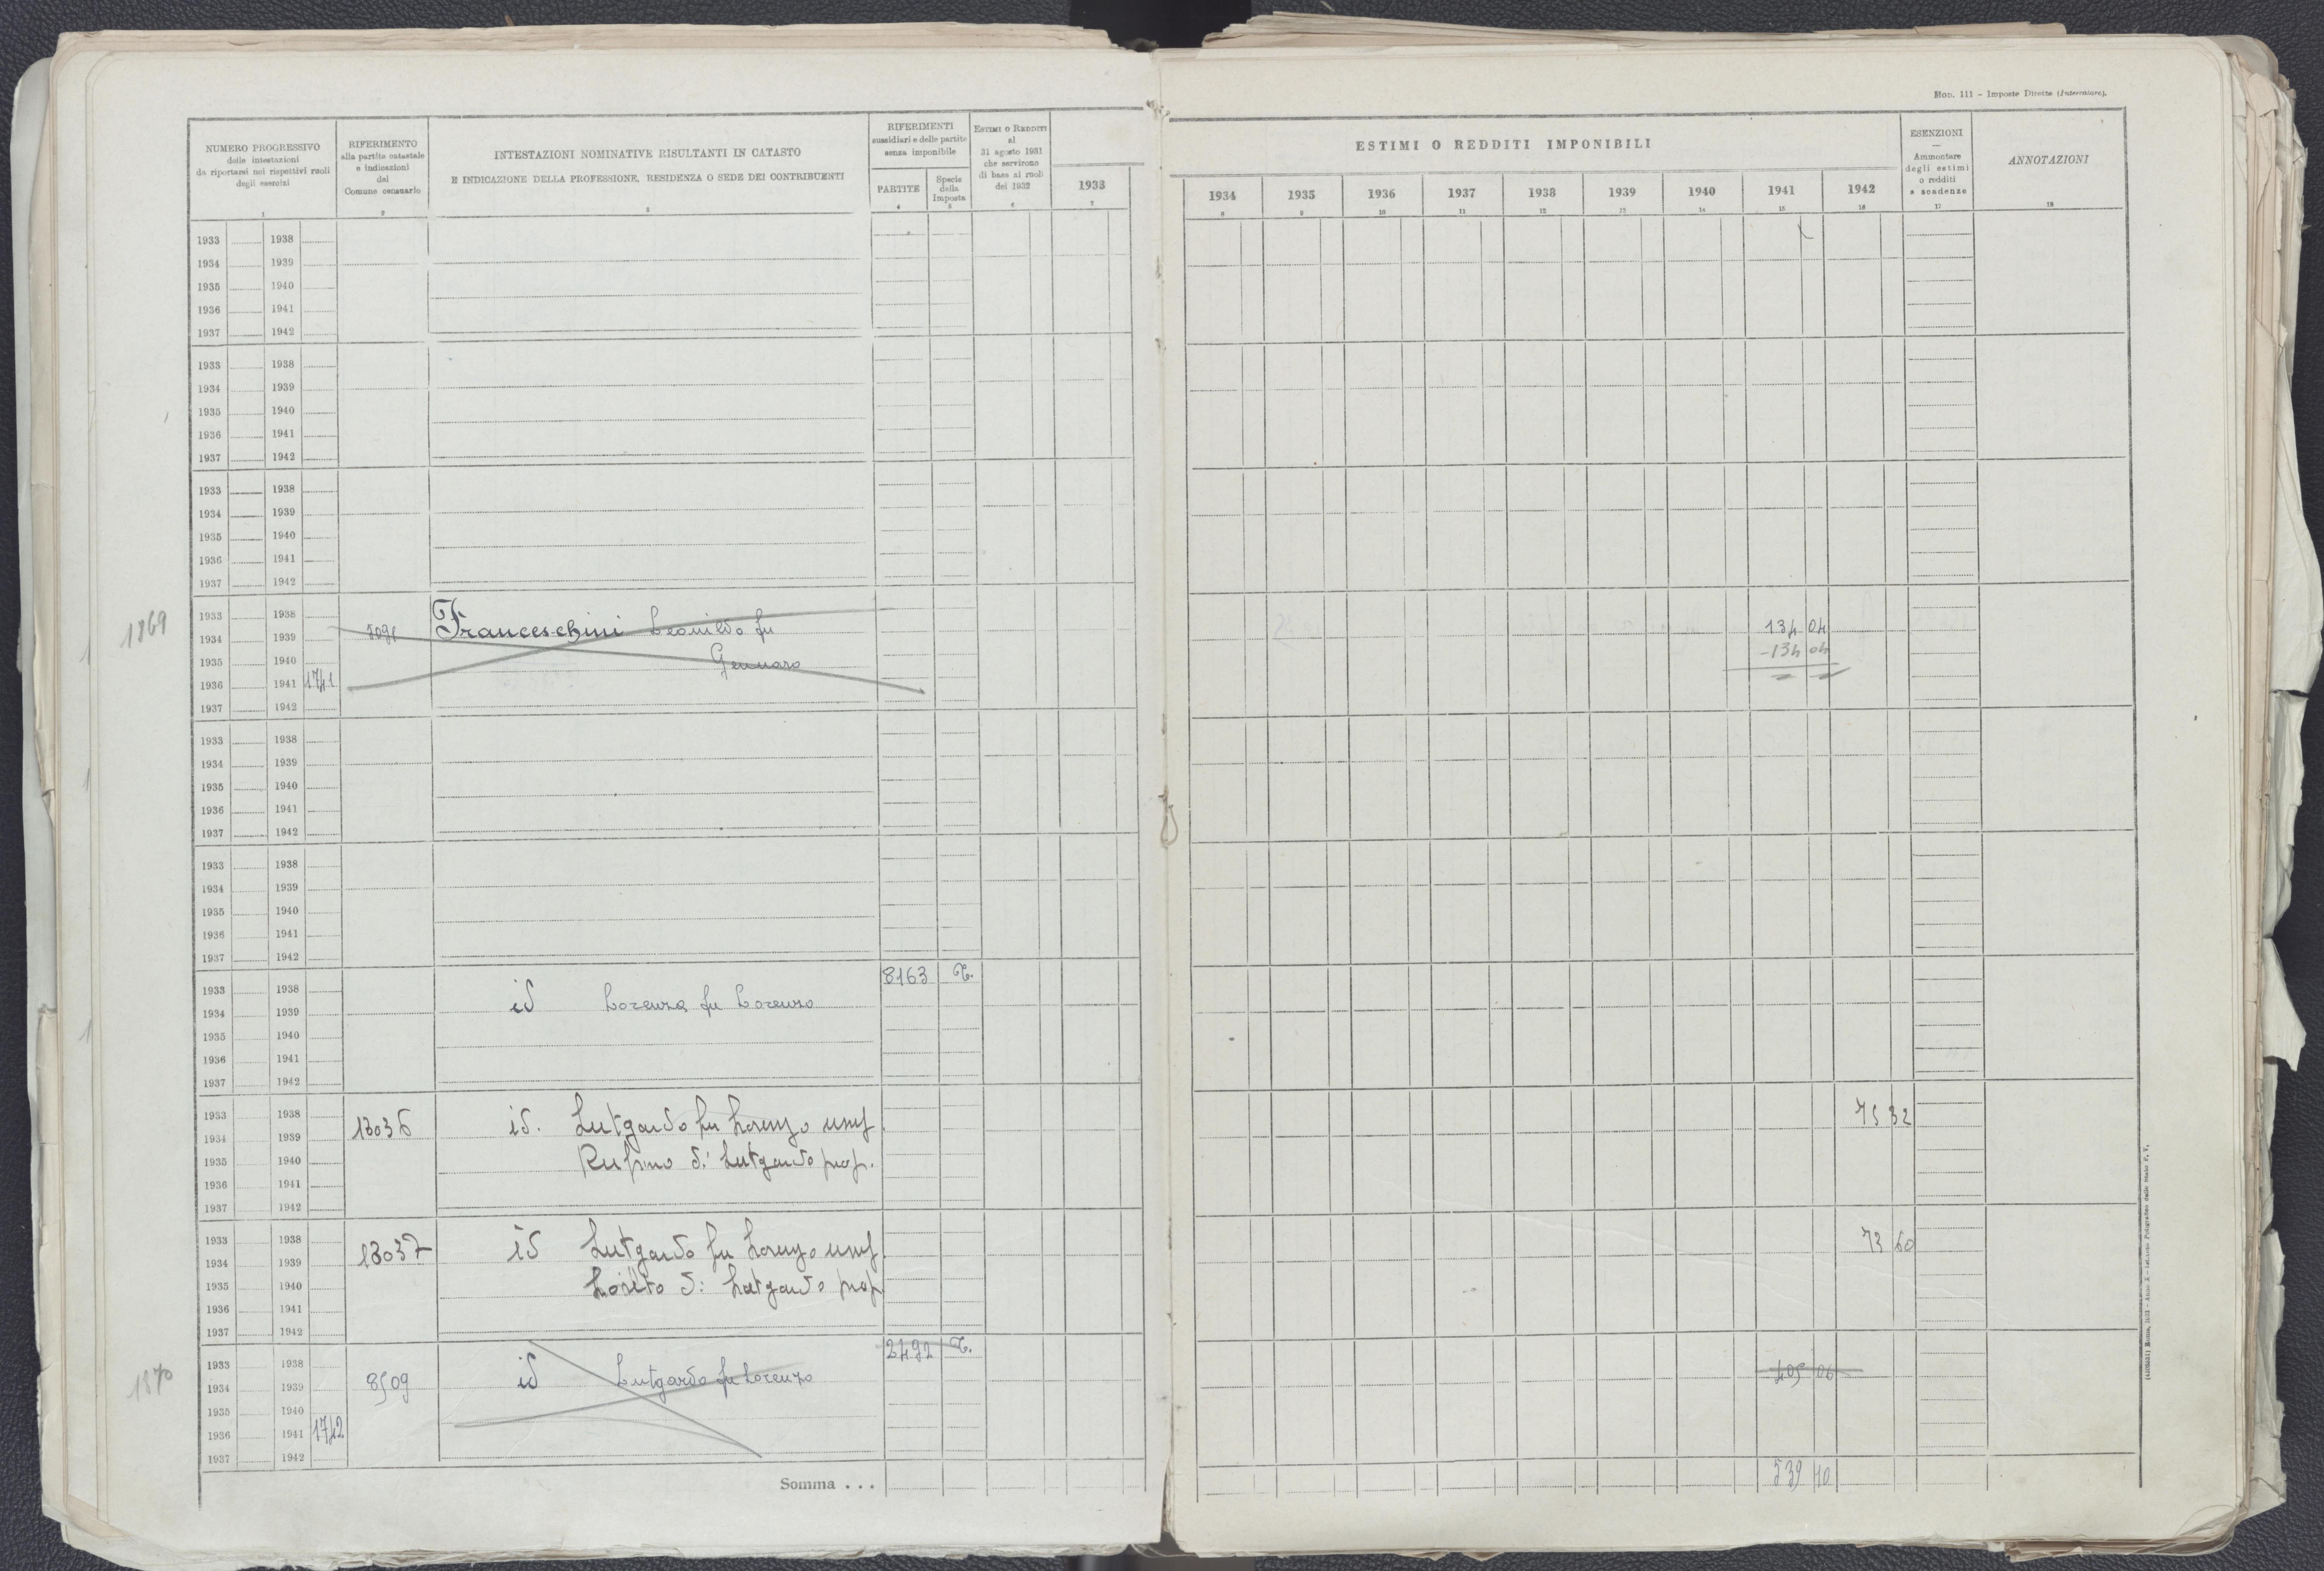 Mod. 111 - Imposte Dirette (Intercalare).
NUMERO PROGRESSIVO
delle intestazioni
da riportarsi nei rispettivi ruoli
degli esercizi
1
RIFERIMENTO
alla partita catastale
e indicazioni
del
Comune censuario
2
INTESTAZIONI NOMINATIVE RISULTANTI IN CATASTO
E INDICAZIONE DELLA PROFESSIONE, RESIDENZA O SEDE DEI CONTRIBUENTI
3
RIFERIMENTI
sussidiari e delle partite
senza imponibile
PARTITE
4
Specie
della
Imposta
5
ESTIMI O REDDITI
al
31 agosto 1931
che servirono
di base ai ruoli
del 1932
6
1933
7
ESTIMI O REDDITI IMPONIBILI
1934 1935 1936 1937 1938 1939 1940 1941 1942
8 9 10 11 12 13 14 15 16
ESENZIONI
—
Ammontare
degli estimi
o redditi
e scadenze
17
ANNOTAZIONI
18
1933 1938
1934 1939
1935 1940
1936 1941
1937 1942
1933 1938
1934 1939
1935 1940
1936 1941
1937 1942
1933 1938
1934 1939
1935 1940
1936 1941
1937 1942
1869
1933 1938
1934 1939 Franceschini Leonildo fu 134 04
1935 1940 Gennaro -134 04
1936 1941 1741
1937 1942
1933 1938
1934 1939
1935 1940
1936 1941
1937 1942
1933 1938
1934 1939
1935 1940
1936 1941
1937 1942
8163 T.
1933 1938
1934 1939 id Lorenza fu Lorenzo
1935 1940
1936 1941
1937 1942
1933 1938 75 32
1934 1939 13036 id. Lutgardo fu Lorenzo usuf
1935 1940 Rufino di Lutgardo prop.
1936 1941
1937 1942
1933 1938 73 60
1934 1939 13037 id Lutgardo fu Lorenzo usuf.
1935 1940 Loreto di Lutgardo prop
1936 1941
1937 1942
2492 T.
1870
1933 1938 405 06
1934 1939 8509 id Lutgardo fu Lorenzo
1935 1940
1936 1941 1742
1937 1942
Somma . . . 539 10